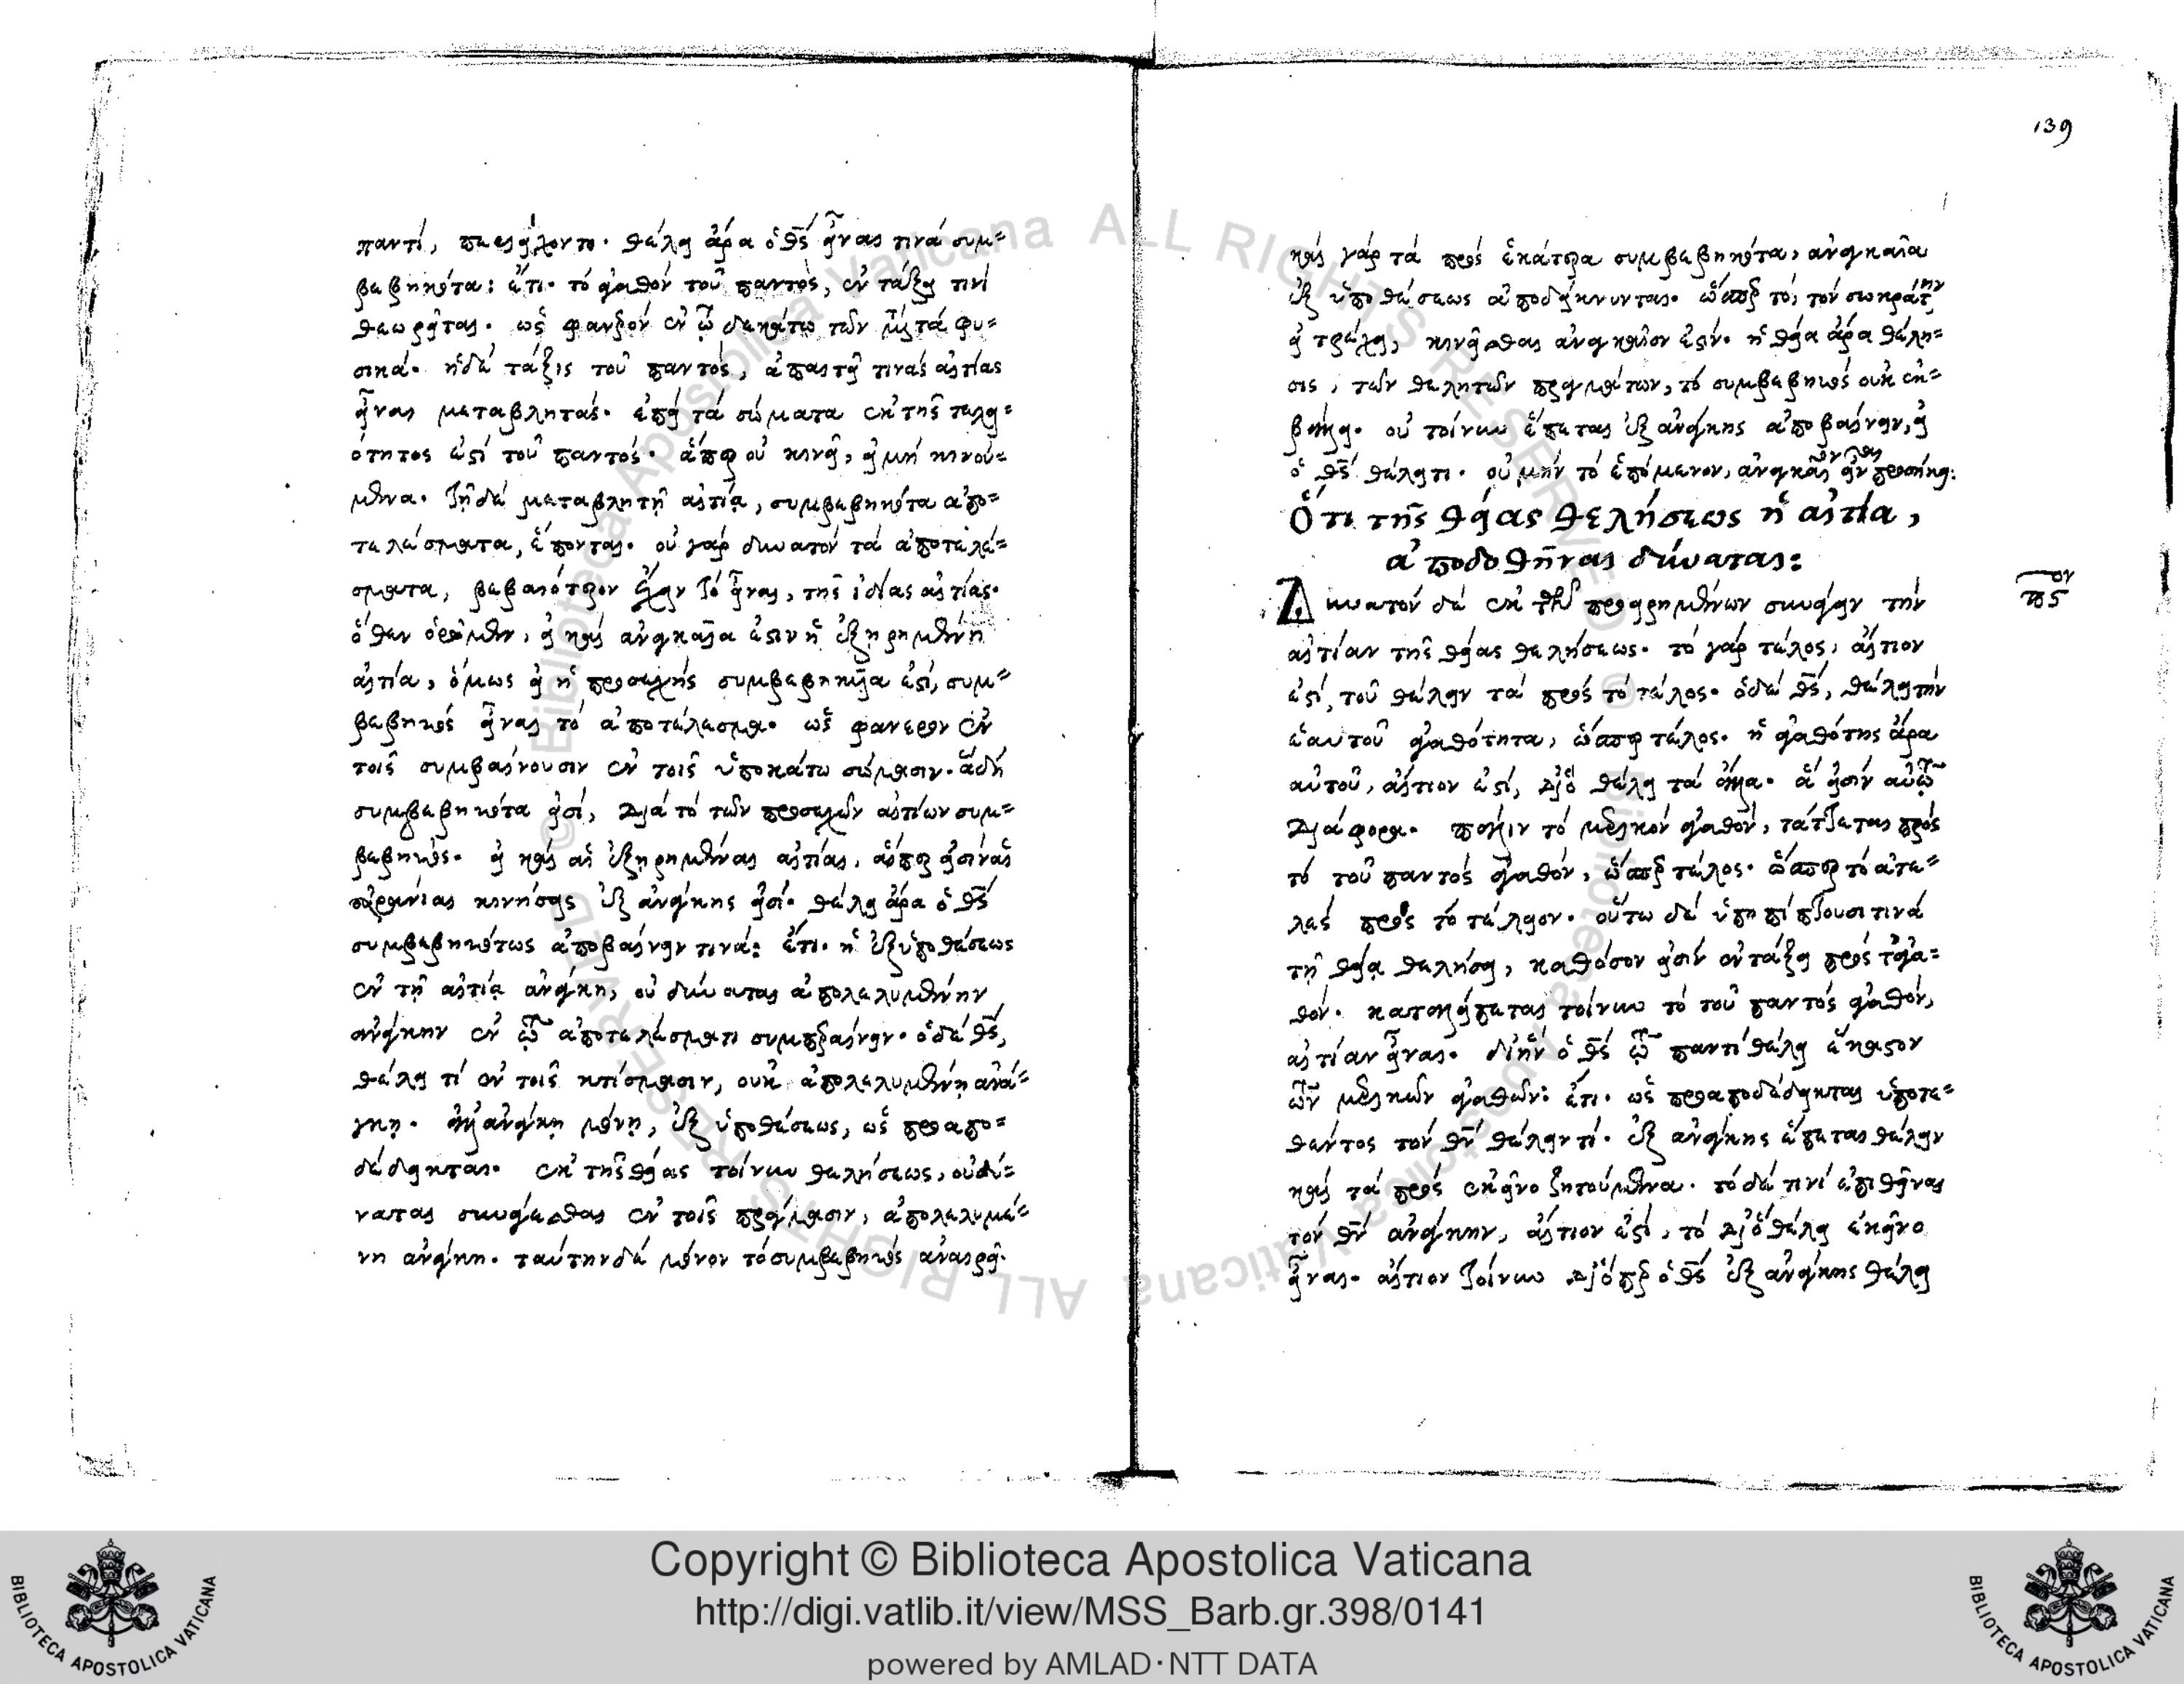 139
παντί, περιείχοντο. θέλει ἄρα ὁ θς̄ εἶναι τινὰ συμ=
βεβηκότα: ἔτι. τὸ ἀγαθὸν τοῦ παντὸς, ἐν τάξει τινὶ
θεωρεῖται. ὡς φανερὸν ἐν τῷ δεκάτῳ τῶν μετὰ φυ=
σικά. ἡ δὲ τάξις τοῦ παντὸς, ἀπαιτεῖ τινὰς αἰτίας
εἶναι μεταβλητάς. ἐπεὶ τὰ σώματα ἐκ τῆς τελει=
ότητος ἐστὶ τοῦ παντός. ἅπερ οὐ κινεῖ, εἰ μὴ κινού=
μενα. τῇ δὲ μεταβλητῇ αἰτίᾳ, συμβεβηκότα ἀπο=
τελέσματα, ἕπονται. οὐ γὰρ δυνατὸν τὰ ἀποτελέ=
σματα, βεβαιότερον ἔχειν τὸ εἶναι, τῆς ἰδίας αἰτίας.
ὅθεν ὁρῶμεν, εἰ καὶ ἀναγκαῖα ἐστὶν ἡ ἐξῃρημένη
αἰτία, ὅμως εἰ ἡ προσεχὴς συμβεβηκυῖα ἐστὶ, συμ=
βεβηκὸς εἶναι τὸ ἀποτέλεσμα. ὡς φανερὸν ἐν
τοῖς συμβαίνουσιν ἐν τοῖς ὑποκάτω σώμασιν. ἃ δὴ
συμβεβηκότα εἰσὶ, διὰ τὸ τῶν προσεχῶν αἰτίων συμ=
βεβηκὸς. εἰ καὶ αἱ ἐξῃρημέναι αἰτίαι, αἵπερ εἰσὶν αἱ
οὐράνιαι κινήσεις ἐξ ἀνάγκης εἰσί. θέλει ἄρα ὁ θς̄
συμβεβηκότως ἀποβαίνειν τινά: ἔτι. ἡ ἐξ ὑποθέσεως
ἐν τῇ αἰτίᾳ ἀνάγκη, οὐ δύναται ἀπολελυμένην
ἀνάγκην ἐν τῷ ἀποτελέσματι συμπεραίνειν. ὁ δὲ θς̄,
θέλει τὶ ἐν τοῖς κτίσμασιν, οὐκ ἀπολελυμένῃ ἀνά=
γκῃ. ἀλλ' ἀνάγκῃ μόνῃ, ἐξ ὑποθέσεως, ὡς προαπο=
δέδεικται. ἐκ τῆς θείας τοίνυν θελήσεως, οὐ δύ=
ναται συνάγεσθαι ἐν τοῖς πράγμασιν, ἀπολελυμέ=
νη ἀνάγκη. ταύτην δὲ μόνον τὸ συμβεβηκὸς ἀναιρεῖ.
καὶ γὰρ τὰ πρὸς ἑκάτερα συμβεβηκότα, ἀναγκαῖα
ἐξ ὑποθέσεως ἀποδείκνυνται. ὥσπερ τὸ, τὸν σωκράτην
εἰ τρέχει, κινεῖσθαι ἀναγκαῖον ἐστίν. ἡ θεία ἄρα θέλη=
σις, τῶν θελητῶν πραγμάτων, τὸ συμβεβηκὸς οὐκ ἐκ=
βάλλει. οὐ τοίνυν ἕπεται ἐξ ἀνάγκης ἀποβαίνειν, εἰ
ὁ θς̄ θέλει τι. οὐ μὴν τὸ ἑπόμενον, ἀναγκαῖον εἶναι προσήκει:
Ὅτι τῆς θείας θελήσεως ἡ αἰτία,
ἀποδοθῆναι δύναται:
Δυνατὸν δὲ ἐκ τῶν προειρημένων συνάγειν τὴν
αἰτίαν τῆς θείας θελήσεως. τὸ γὰρ τέλος, αἴτιον
ἐστὶ, τοῦ θέλειν τὰ πρὸς τὸ τέλος. ὁ δὲ θς̄, θέλει τὴν
ἑαυτοῦ ἀγαθότητα, ὥσπερ τέλος. ἡ ἀγαθότης ἄρα
αὐτοῦ, αἴτιον ἐστὶ, διὸ θέλει τὰ ἄλλα. ἅ εἰσιν αὐτῷ
διάφορα. πάλιν τὸ μερικὸν ἀγαθὸν, τάττεται πρὸς
τὸ τοῦ παντὸς ἀγαθὸν, ὥσπερ τέλος. ὥσπερ τὸ ἀτε=
λὲς πρὸς τὸ τέλειον. οὕτω δὲ ὑποπίπτουσι τινὰ
τῇ θείᾳ θελήσει, καθόσον εἰσὶν ἐν τάξει πρὸς τἀγα=
θόν. καταλείπεται τοίνυν τὸ τοῦ παντὸς ἀγαθὸν,
αἰτίαν εἶναι. δι' ἣν ὁ θς̄ τῷ παντὶ θέλει ἕκαστον
τῶν μερικῶν ἀγαθῶν: ἔτι. ὡς προαποδέδεικται ὑποτε=
θέντος τὸν θν̄ θέλειν τί. ἐξ ἀνάγκης ἕπεται θέλειν
καὶ τὰ πρὸς ἐκεῖνο ζητούμενα. τὸ δὲ τινὶ ἐπιθεῖναι
τὸν θν̄ ἀνάγκην, αἴτιον ἐστὶ, τὸ διὸ θέλει ἐκεῖνο
εἶναι. αἴτιον τοίνυν διόπερ ὁ θς̄ ἐξ ἀνάγκης θέλει
Copyright © Biblioteca Apostolica Vaticana
http://digi.vatlib.it/view/MSS_Barb.gr.398/0141
powered by AMLAD·NTT DATA